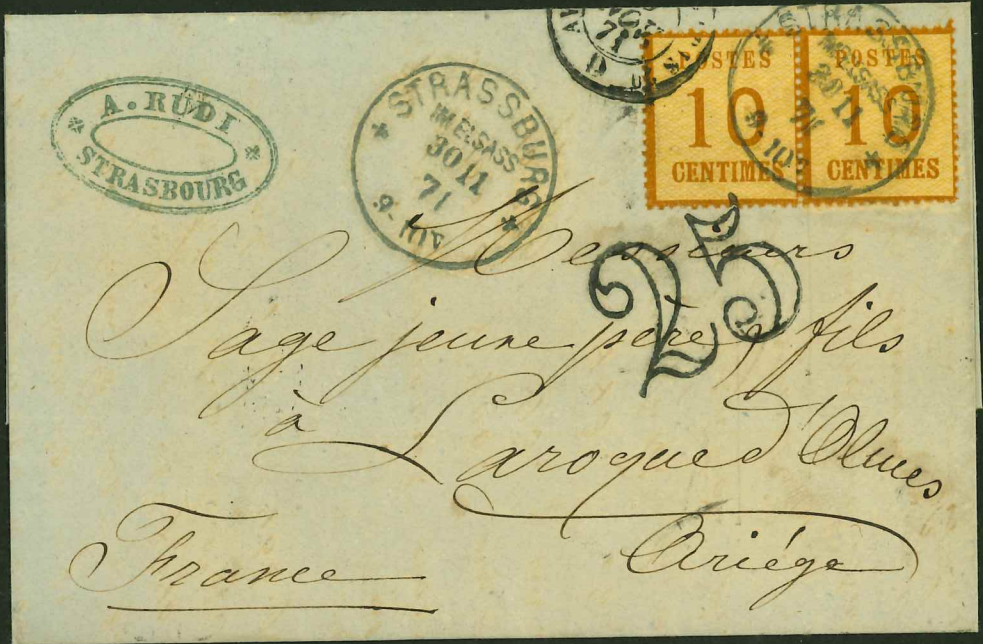 A. RUDI
STRASBOURG
STRASSBURG
IM ELSASS
30 11
71
POSTES
10
CENTIMES
POSTES
10
CENTIMES
STRASSBURG
IM ELSASS
30 11
71
25
Messieurs
Sage jeune père & fils
à
Laroque d'Olmes
Ariége
France